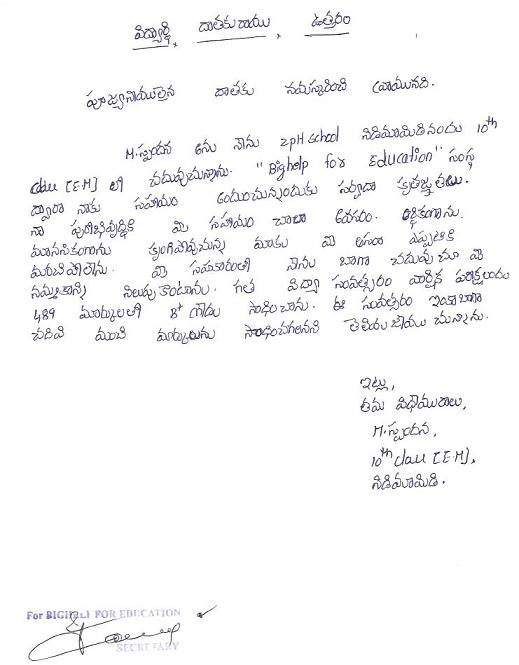 విద్యార్థి దాతకు రాయు ఉత్తరం
పూజ్యనీయులైన దాతకు నమస్కరించి వ్రాయునది.
M.స్పందన అను నేను ZPH school నిడిమామిడి నందు 10th
class [E.M] లో చదువుచున్నాను. "Bighelp for Education" సంస్థ
ద్వారా నాకు సహాయం అందించుచున్నందుకు సర్వదా కృతజ్ఞతలు.
నా పురోభివృద్ధికి మీ సహాయం చాలా అవసరం. ఆర్థికంగాను,
మానసికంగాను కృంగిపోవుచున్న మాకు మీ ఆసరా ఎప్పటికీ
మరచిపోలేను. మీ సహకారంతో నేను బాగా చదువుచూ మీ
నమ్మకాన్ని నిలుపుకొంటాను. గత విద్యా సంవత్సరం వార్షిక పరీక్షలందు
489 మార్కులతో B+ గ్రేడు సాధించాను. ఈ సంవత్సరం ఇంకా బాగా
చదివి మంచి మార్కులును సాధించగలనని తెలియజేయు చున్నాను.
ఇట్లు,
తమ విధేయురాలు,
M.స్పందన,
10th class [E.M],
నిడిమామిడి.
For BIGHELP FOR EDUCATION
SECRETARY